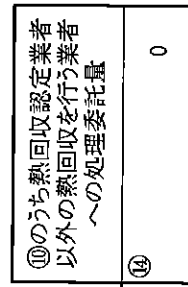 ⑩のうち熱回収認定業者
以外の熱回収を行う業者
への処理委託量
⑭
0